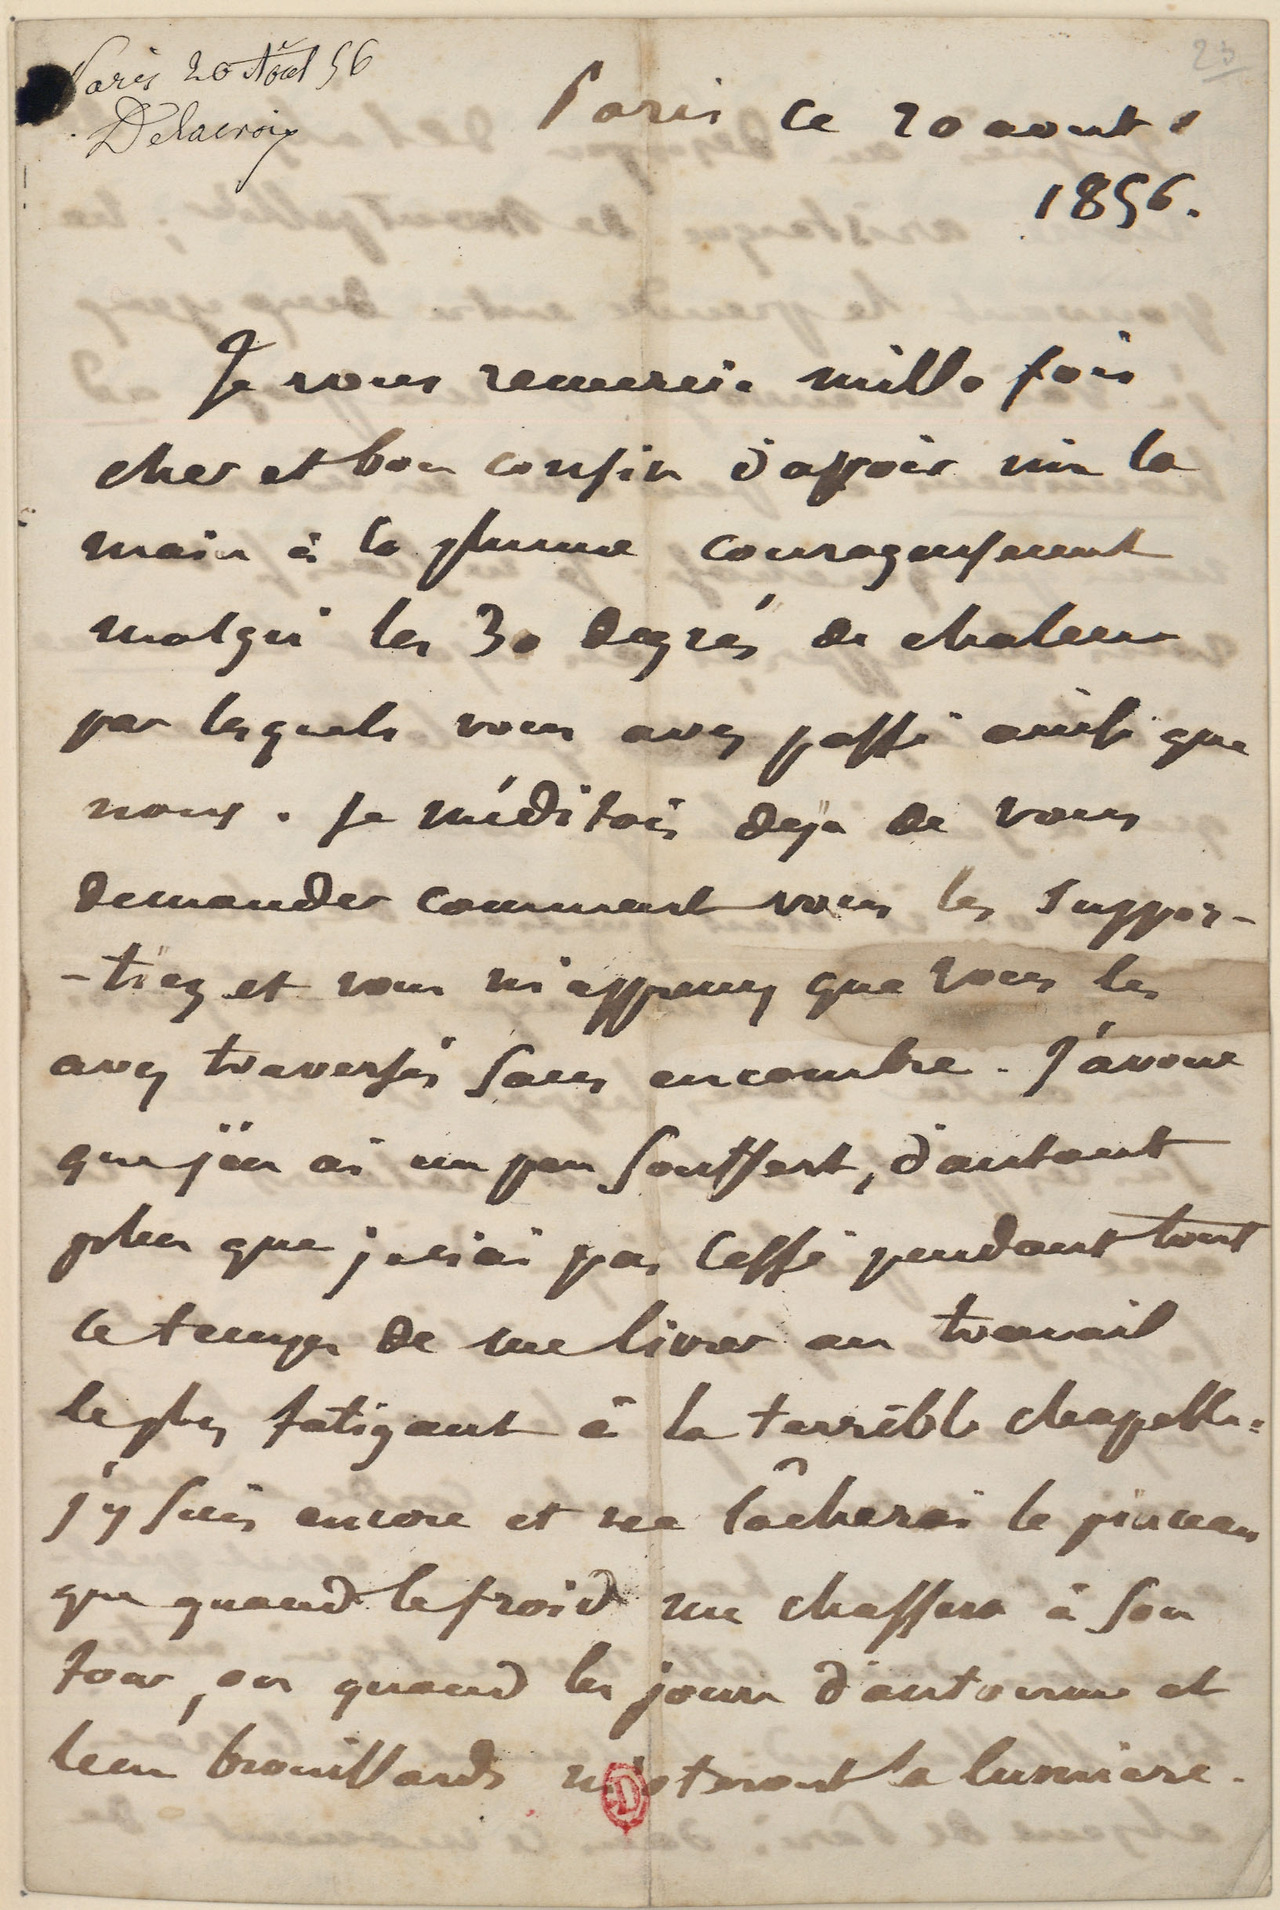 Paris 20 Août 56
Delacroix
23
Paris ce 20 aout
1856.
Je vous remercie mille fois
cher et bon cousin d'avoir mis la
main à la plume courageusement
malgré les 30 degrés de chaleur
par lesquels vous avez passé ainsi que
nous. Je méditais déja de vous
demander comment vous les suppor-
-tiez et vous m'apprenez que vous les
avez traversés sans encombre. J'avoue
que j'en ai un peu souffert, d'autant
plus que je n'ai pas cessé pendant tout
ce temps de me livrer au travail
le plus fatigant à la terrible chapelle:
j'y suis encore et ne lâcherai le pinceau
que quand le froid me chassera à son
tour, ou quand les jours d'automne et
leurs brouillards m'oteront la lumière.